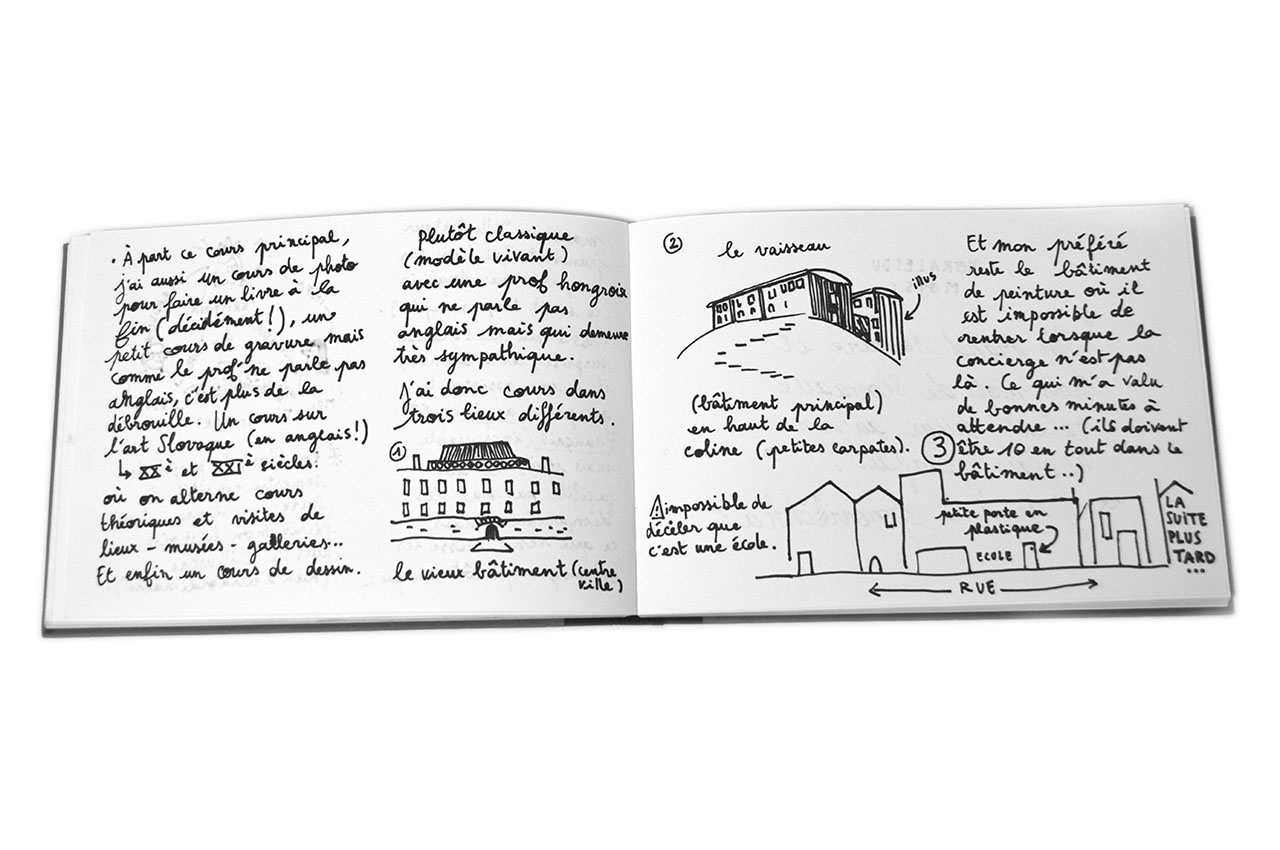 · À part ce cours principal,
j'ai aussi un cours de photo
pour faire un livre à la
fin (décidément!), un
petit cours de gravure mais
comme le prof ne parle pas
anglais, c'est plus de la
débrouille. Un cours sur
l'art Slovaque (en anglais!)
↳ XXè et XXIè siècles.
où on alterne cours
théoriques et visites de
lieux - musées - galleries...
Et enfin un cours de dessin.
plutôt classique
(modèle vivant)
avec une prof hongroise
qui ne parle pas
anglais mais qui demeure
très sympathique.
J'ai donc cours dans
trois lieux différents.
1
le vieux bâtiment (centre
ville)
2
le vaisseau
(bâtiment principal)
en haut de la
coline (petites carpates).
Et mon préféré
reste le bâtiment
de peinture où il
est impossible de
rentrer lorsque la
concierge n'est pas
là. Ce qui m'a valu
de bonnes minutes à
attendre ... (ils doivent
être 10 en tout dans le
bâtiment...)
3
⚠ impossible de
déceler que
c'est une école.
petite porte en
plastique
ECOLE
RUE
LA
SUITE
PLUS
TARD
...